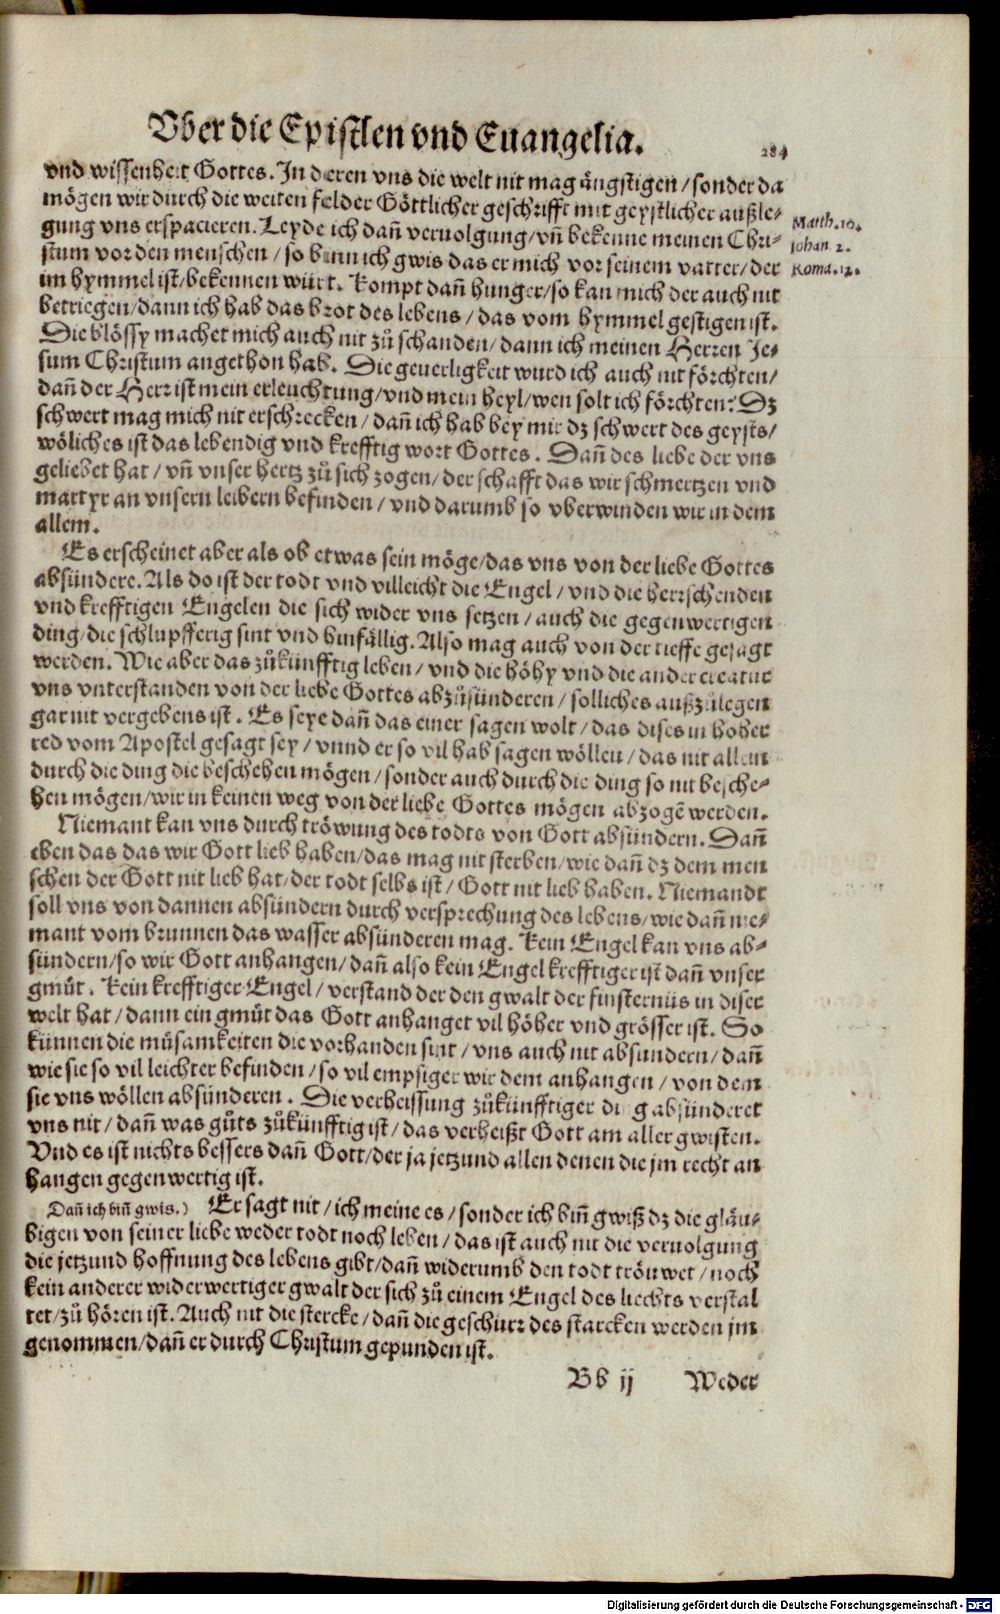 Vber die Epistlen vnd Euangelia.
284
vnd wissenheit Gottes. In deren vns die welt nit mag ängstigen / sonder da
mögen wir durch die weiten felder Göttlicher geschrifft mit geystlicher außle-
gung vns erspacieren. Leyde ich dañ veruolgung / vñ bekenne meinen Chri-
stum vor den menschen / so binn ich gwis das er mich vor seinem vatter / der
im hymmel ist / bekennen würt. Kompt dañ hunger / so kan mich der auch nit
betriegen / dann ich hab das brot des lebens / das vom hymmel gestigen ist.
Die blössy machet mich auch nit zů schanden / dann ich meinen Herren Je-
sum Christum angethon hab. Die geuerligkeit wurd ich auch nit förchten /
dañ der Herr ist mein erleuchtung / vnd mein heyl / wen solt ich förchten? Dz
schwert mag mich nit erschrecken / dañ ich hab bey mir dz schwert des geysts /
wöliches ist das lebendig vnd krefftig wort Gottes. Dañ des liebe der vns
geliebet hat / vñ vnser hertz zů sich zogen / der schafft das wir schmertzen vnd
martyr an vnsern leibern befinden / vnd darumb so vberwinden wir in dem
allem.
Matth. 10.
Johan. 2.
Roma. 12.
Es erscheinet aber als ob etwas sein möge / das vns von der liebe Gottes
absündere. Als do ist der todt vnd villeicht die Engel / vnd die herrschenden
vnd krefftigen Engelen die sich wider vns setzen / auch die gegenwertigen
ding / die schlupfferig sint vnd hinfällig. Also mag auch von der tieffe gesagt
werden. Wie aber das zůkünfftig leben / vnd die höhy vnd die ander creatur
vns vnterstanden von der liebe Gottes abzůsünderen / solliches außzůlegen
gar nit vergebens ist. Es seye dañ das einer sagen wolt / das dises in hoher
red vom Apostel gesagt sey / vnnd er so vil hab sagen wöllen / das nit allein
durch die ding die beschehen mögen / sonder auch durch die ding so nit besche-
hen mögen / wir in keinen weg von der liebe Gottes mögen abzogē werden.
Niemant kan vns durch tröwung des todts von Gott absündern. Dañ
eben das das wir Gott lieb haben / das mag nit sterben / wie dañ dz dem men
schen der Gott nit lieb hat / der todt selbs ist / Gott nit lieb haben. Niemandt
soll vns von dannen absündern durch versprechung des lebens / wie dañ nie-
mant vom brunnen das wasser absünderen mag. Kein Engel kan vns ab-
sündern / so wir Gott anhangen / dañ also kein Engel krefftiger ist dañ vnser
gmůt. Kein krefftiger Engel / verstand der den gwalt der finsternüs in diser
welt hat / dann ein gmůt das Gott anhanget vil höher vnd grösser ist. So
künnen die müsamkeiten die vorhanden sint / vns auch nit absündern / dañ
wie sie so vil leichter befinden / so vil empsiger wir dem anhangen / von dem
sie vns wöllen absünderen. Die verheissung zůkünfftiger ding absünderet
vns nit / dañ was gůts zůkünfftig ist / das verheißt Gott am aller gwisten.
Vnd es ist nichts bessers dañ Gott / der ja jetzund allen denen die jm recht an
hangen gegenwertig ist.
Dañ ich biñ gwis.) Er sagt nit / ich meine es / sonder ich biñ gwiß dz die gläu-
bigen von seiner liebe weder todt noch leben / das ist auch nit die veruolgung
die jetzund hoffnung des lebens gibt / dañ widerumb den todt tröuwet / noch
kein anderer widerwertiger gwalt der sich zů einem Engel des liechts verstal
tet / zů hören ist. Auch nit die stercke / dañ die geschurz des starcken werden jm
genommen / dañ er durch Christum gepunden ist.
Bb ij Weder
Digitalisierung gefördert durch die Deutsche Forschungsgemeinschaft - DFG